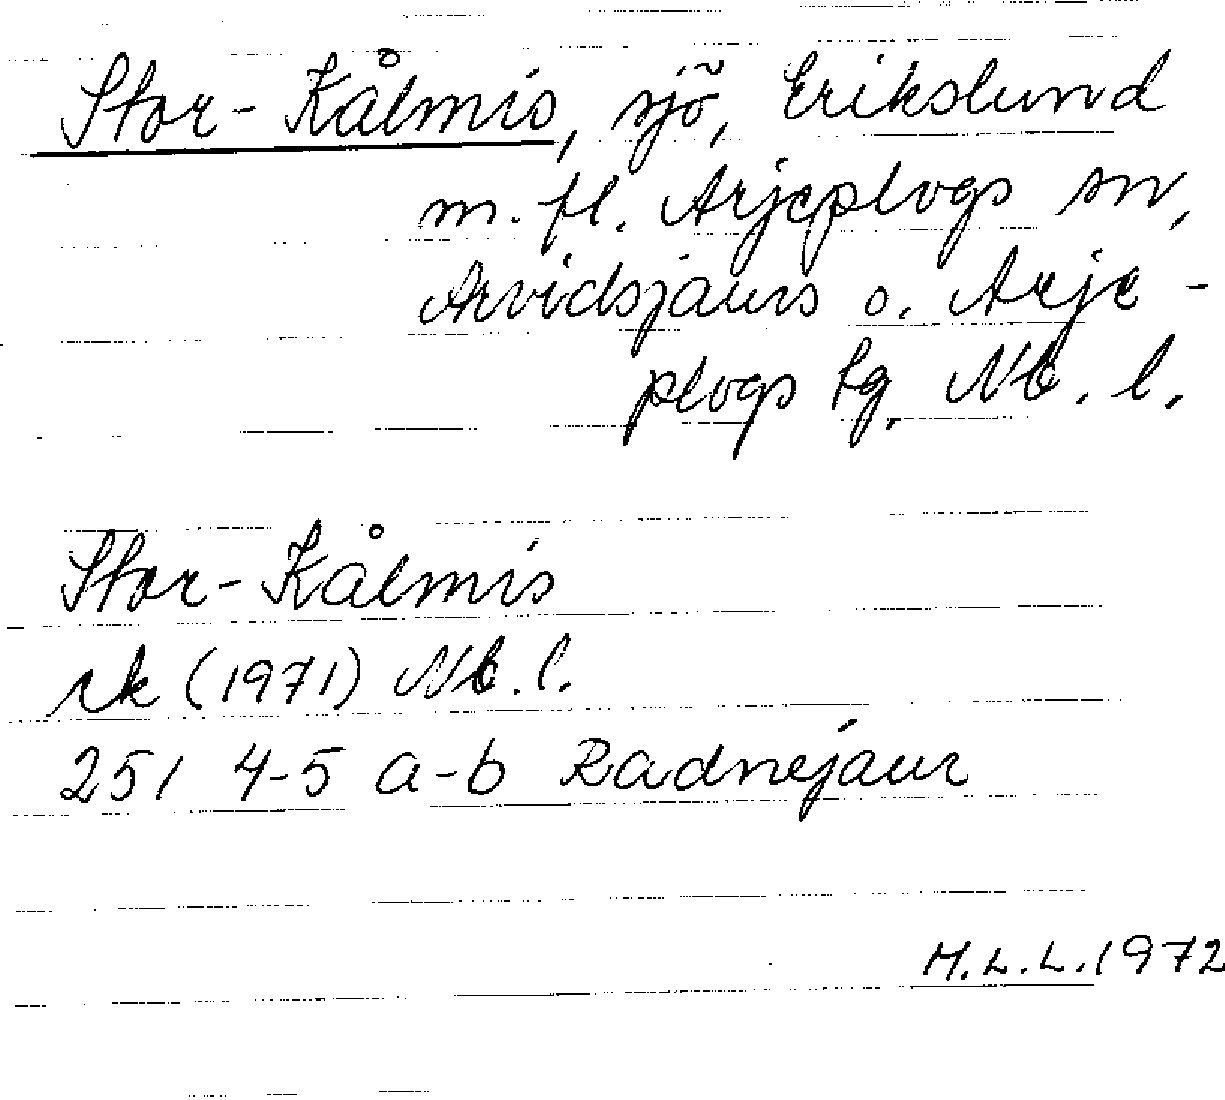 Stor-Kålmis, sjö, Erikslund
m. fl. Arjeplogs sn,
Arvidsjaurs o. Arje-
plogs tg. Nb. l.
Stor-Kålmis
rk (1971) Nb. l.
251 4-5 a-b Radnejaur
M.L.L. 1972